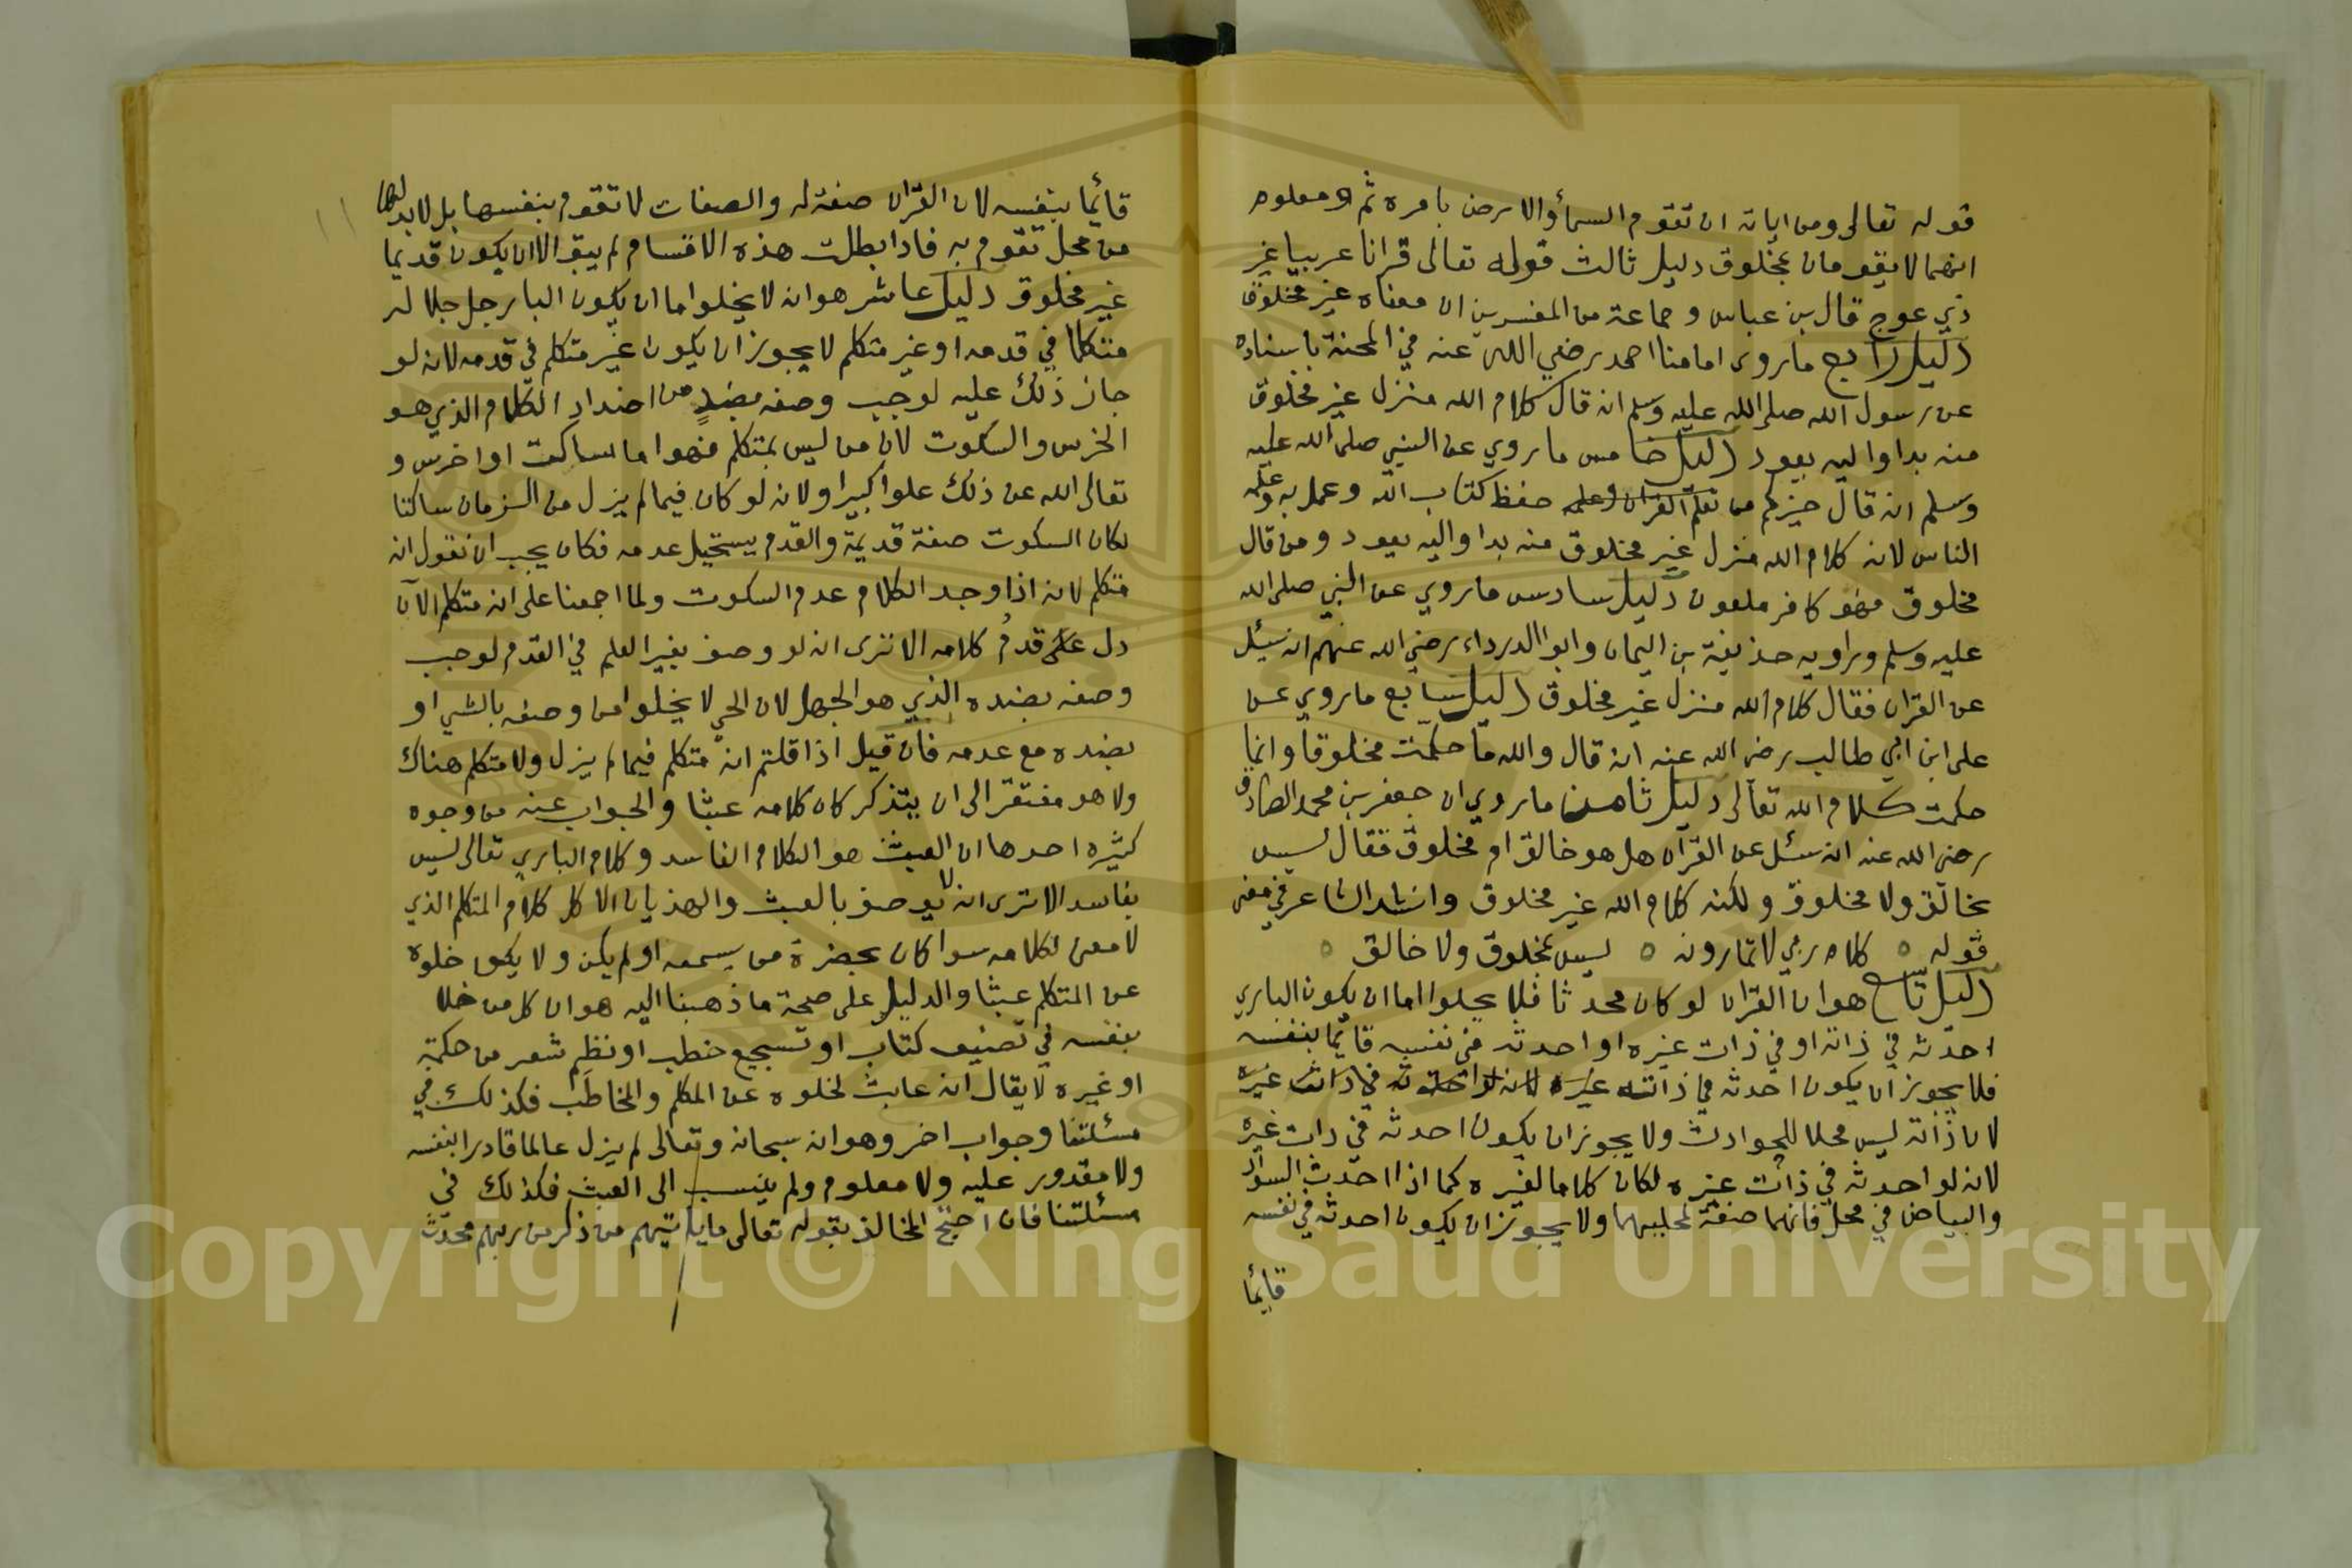 قوله تعالى ومن اياته ان تقوم السمأ والارض بامره ثم ومعلوم
انهما لا يقومان بمخلوق دليل ثالث قوله تعالى قرانا عربيا غير
ذي عوج قال بن عباس وجماعة من المفسرين ان معناه غير مخلوق
دليل رابع ما روى امامنا احمد رضي الله عنه في المحنة باسناده
عن رسول الله صلى الله عليه وسلم انه قال كلام الله منزل غير مخلوق
منه بدا واليه يعود دليل خامس ما روي عن النبي صلى الله عليه
وسلم انه قال خيركم من تعلم القران وعلمه حفظ كتاب الله وعمل به وعلمه
الناس لانه كلام الله منزل غير مخلوق منه بدا واليه يعود ومن قال
مخلوق فهو كافر ملعون دليل سادس ما روي عن النبي صلى الله
عليه وسلم وراويه حذيفة بن اليمان وابو الدرداء رضي الله عنهم انه سيئل
عن القران فقال كلام الله منزل غير مخلوق دليل سابع ما روي عن
على ابن ابي طالب رضى الله عنه انه قال والله ما حكمت مخلوقا وانما
حكمت كلام الله تعالى دليل ثامن ما روي ان جعفر بن محمد الصادق
رضى الله عنه انه سئل عن القرآن هل هو خالق ام مخلوق فقال ليس
بخالق ولا مخلوق ولكنه كلام الله غير مخلوق وانشد الشاعر في معنى
قوله ٥ كلام ربي لا تمارونه ٥ ليس بمخلوق ولا خالق ٥
دليل تاسع هو ان القران لو كان محدثا فلا يخلوا اما ان يكون الباري
احدثه في ذاته او في ذات غيره او احدثه في نفسه قائما بنفسه
فلا يجوز ان يكون احدثه في ذاته غيره لانه لو احدثه في ذات غيره
لان ذاته ليس محلا للحوادث ولا يجوز ان يكون احدثه في ذات غيره
لانه لو احدثه في ذات غيره لكان كلاما لغيره كما اذا احدث السواد
والبياض في محل فانهما صفة لمحليهما ولا يجوز ان يكون احدثه في نفسه
قايما
١١
قائما بنفسه لان القران صفة له والصفات لا تقوم بنفسها بل لا بد لها
من محل تقوم به فاذا بطلت هذه الاقسام لم يبق الا ان يكون قديما
غير مخلوق دليل عاشر هو انه لا يخلوا اما ان يكون البار جل جلاله
متكلما في قدمه او غير متكلم لا يجوز ان يكون غير متكلم في قدمه لانه لو
جاز ذلك عليه لوجب وصفه بضد من اضداد الكلام الذي هو
الخرس والسكوت لان من ليس بمتكلم فهوا ما ساكت او اخرس و
تعالى الله عن ذلك علوا كبيرا ولانه لو كان فيما لم يزل من الزمان ساكتا
لكان السكوت صفة قديمة والقدم يستحيل عدمه فكان يجب ان نقول انه
متكلم لانه اذا وجد الكلام عدم السكوت ولما اجمعنا على انه متكلم الآن
دل على قدم كلامه الا ترى انه لو وصف بغير العلم في القدم لوجب
وصفه بضده الذي هو الجهل لان الحي لا يخلوا من وصفه بالشي او
بضده مع عدمه فان قيل اذا قلتم انه متكلم فيما لم يزل ولا متكلم هناك
ولا هو مفتقر الى ان يتذكر كان كلامه عبثا والجواب عنه من وجوه
كثيره احدها ان العبث هو الكلام الفاسد وكلام الباري تعالى ليس
بفاسد الا ترى انه لا يوصف بالعبث والهذيان الا كل كلام المتكلم الذي
لا معنى لكلامه سوا كان بحضرة من يسمعه او لم يكن ولا يكون خلوه
عن المتكلم عبثا والدليل على صحة ما ذهبنا اليه هو ان كل من خلا
بنفسه في تصنيف كتاب او تسجيع خطب او نظم شعر من حكمة
او غيره لا يقال انه عابث لخلوه عن المكلم والمخاطب فكذلك في
مسئلتنا وجواب اخر وهو انه سبحانه وتعالى لم يزل عالما قادرا بنفسه
ولا مقدور عليه ولا معلوم ولم ينسب الى العبث فكذلك في
مسئلتنا فان احتج المخالف بقوله تعالى ما ياتيهم من ذكر من ربهم محدث
Copyright © King Saud University